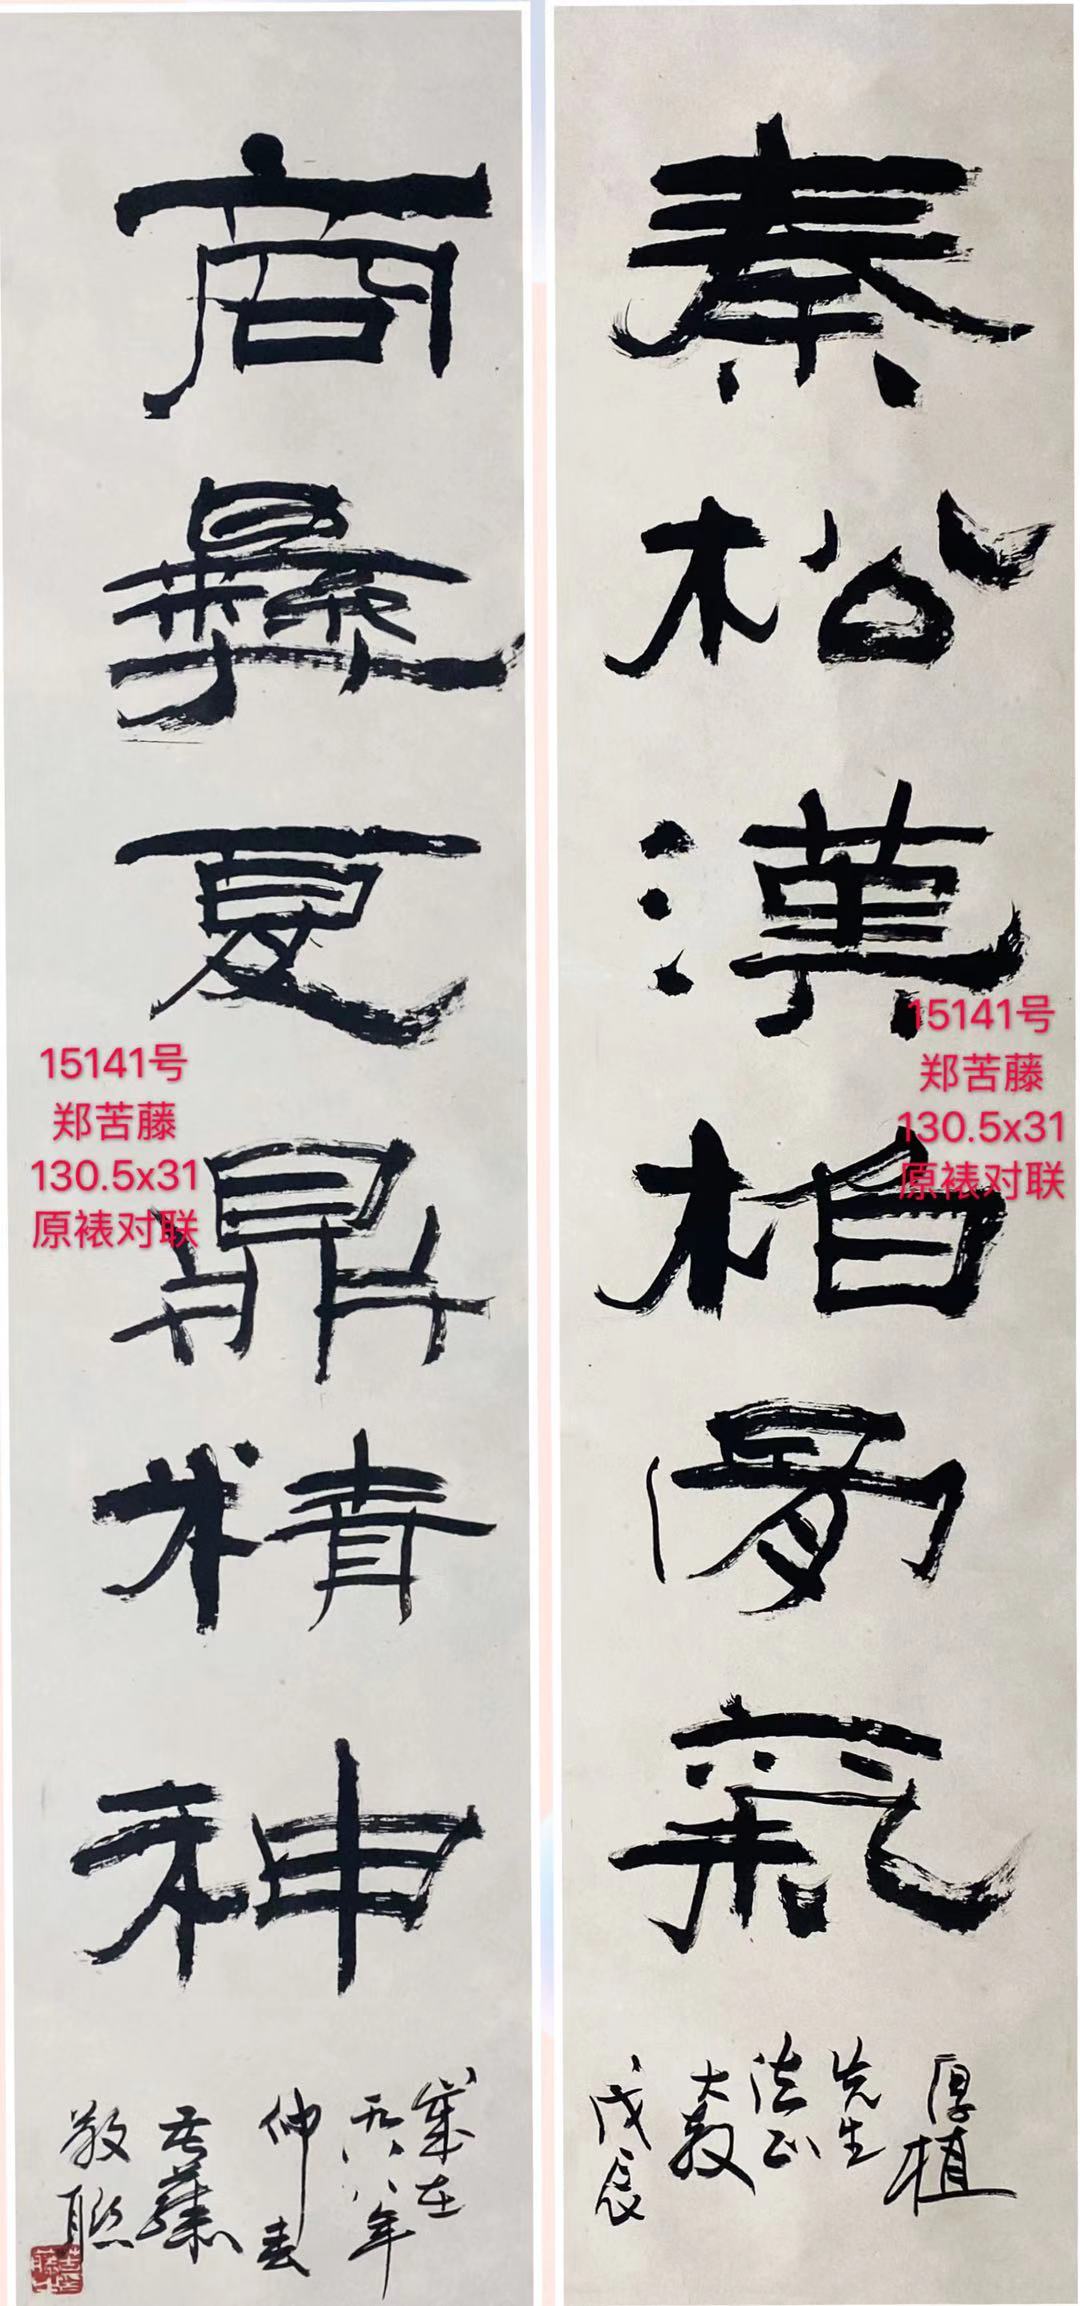 秦松漢柏骨氣
厚植
先生
法正
大教
戊辰
15141号
郑苦藤
130.5x31
原裱对联
商彝夏鼎精神
歲在
一九八八年
仲春
苦藤
敬聯
15141号
郑苦藤
130.5x31
原裱对联